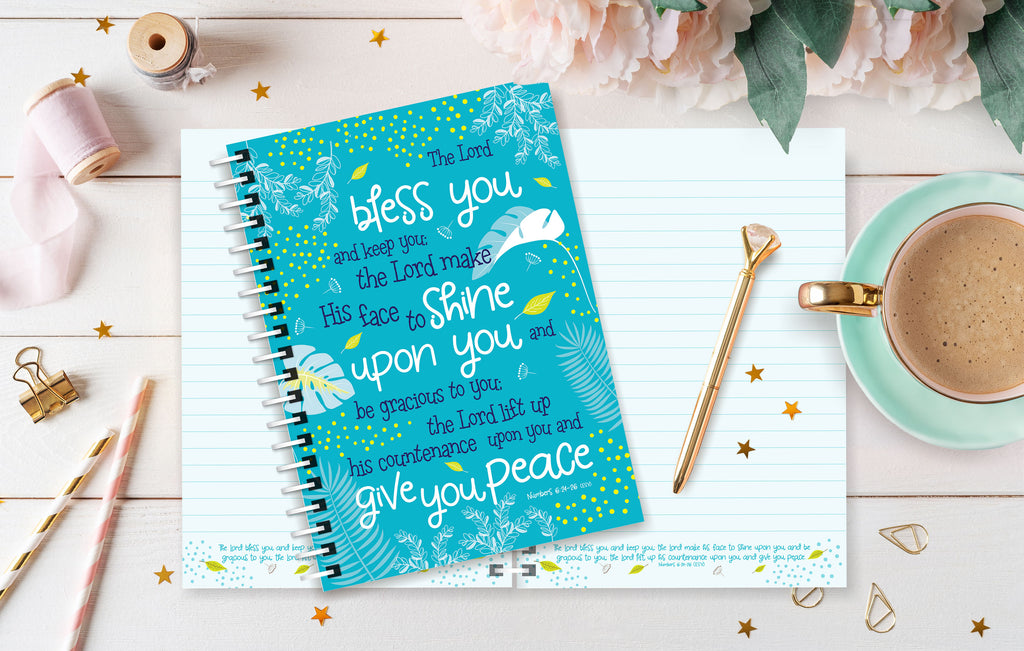 The Lord
bless you
and keep you;
the Lord make
His face to shine
upon you and
be gracious to you;
the Lord lift up
his countenance upon you and
give you peace
Numbers 6:24-26
The Lord bless you and keep you
gracious to you; the Lord
The Lord bless you and keep you; the Lord make His face to shine upon you and be
gracious to you; the Lord lift up his countenance upon you, and give you peace
Numbers 6:24-26